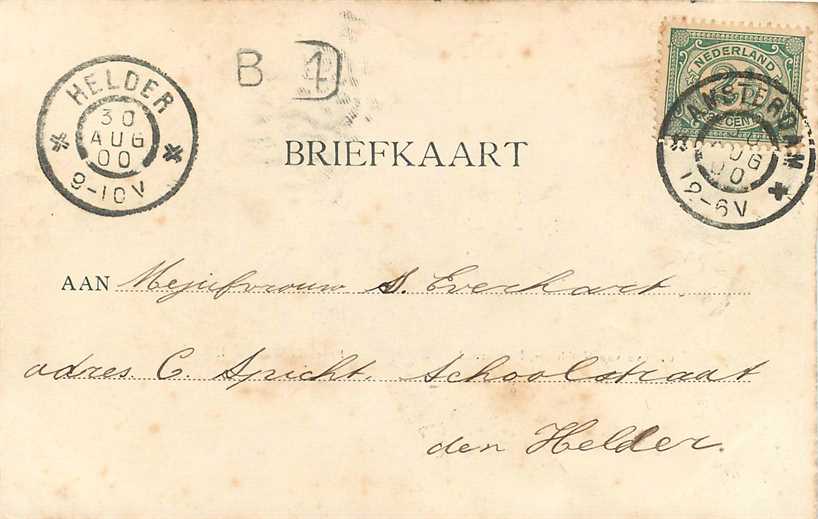 HELDER
30
AUG
00
9-10V
B 4
NEDERLAND
CENT
AMSTERDAM
AUG
00
12-6V
BRIEFKAART
AAN Mejufvrouw S. Everhart
adres C. Spicht. Schoolstraat
den Helder.